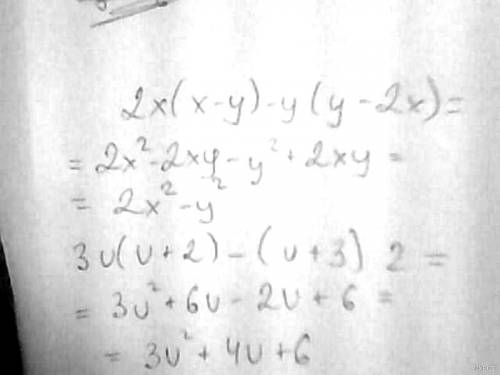 2x(x-y)-y(y-2x)=
=2x²-2xy-y²+2xy=
=2x²-y²
3u(u+2)-(u+3)2=
=3u²+6u-2u+6=
=3u²+4u+6